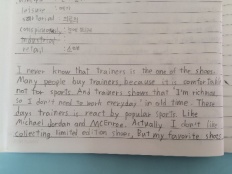 leisure :
industrial
retail :
I never know that trainers is the one of the shoes.
Many people buy trainers, because is is comfortable
not for sports. And trainers shows that 'I'm rich,
so I don't need to work everyday' in old time. These
days trainers is react by popular sports. Like
Michael Jordan and McEnroe. Actually I don't like
collecting limited edition shoes, But my favorite shoes